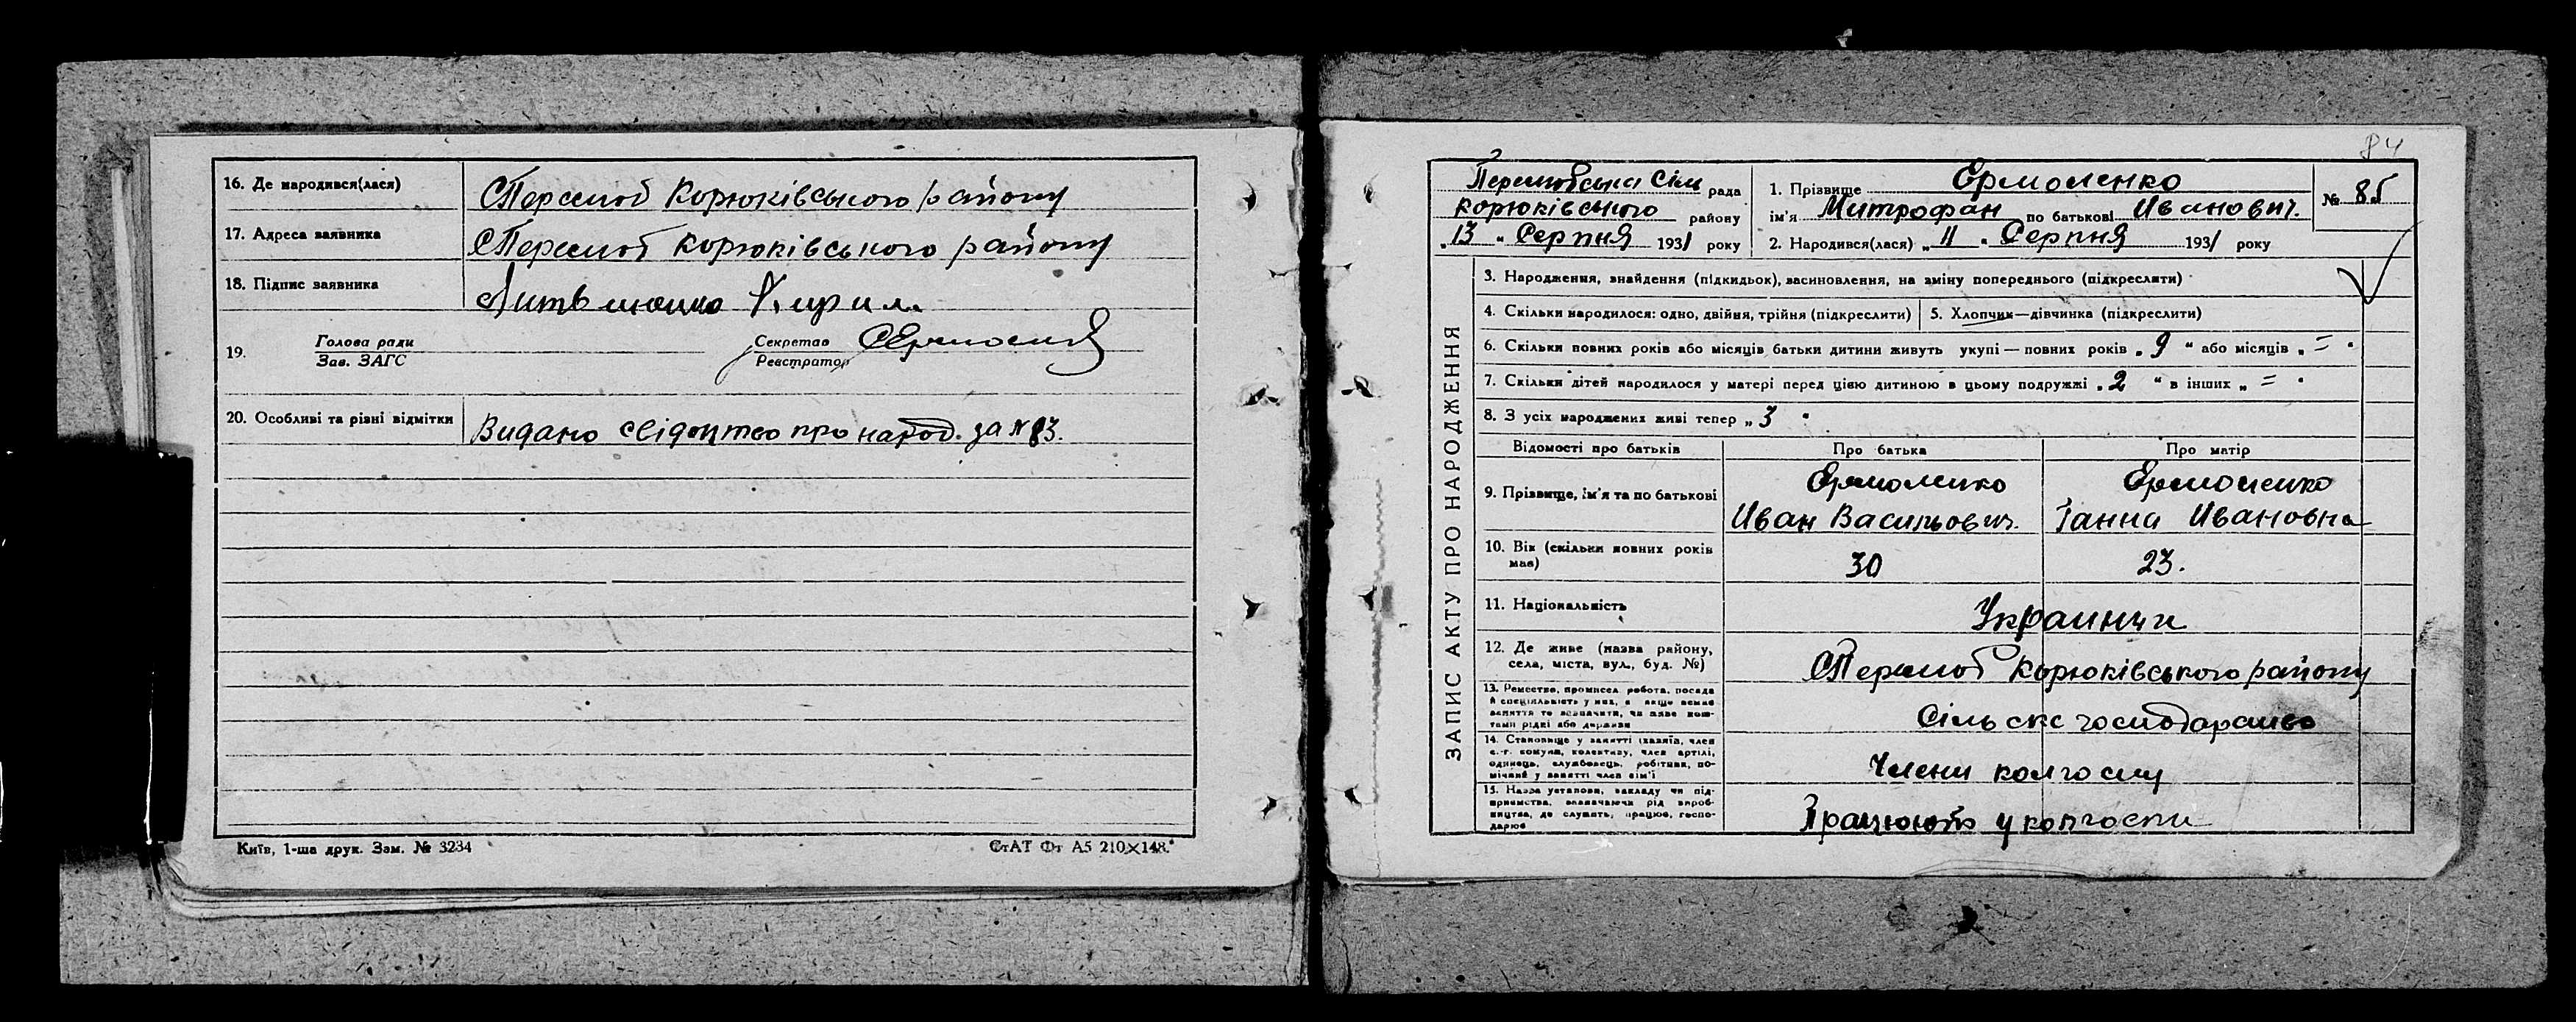 16. Де народився(лася) С Перелюб Корюківського району
17. Адреса заявника С Перелюб Корюківського району
18. Підпис заявника Литвиненко Кирил
19. Голова ради
Зав. ЗАГС
Секретар
Реєстратор
20. Особливі та різні відмітки Видано свідоцтво про народ. за № 83.
Київ, 1-ша друк. Зам. № 3234 СтАТ Фт А5 210×148.
84
Перелюбська Сіль рада
Корюківського району
„13 " Серпня 1931 року
1. Прізвище Єрмоленко
ім'я Митрофан по батькові Иванович.
2. Народився(лася) „11 " Серпня 1931 року
№ 85
ЗАПИС АКТУ ПРО НАРОДЖЕННЯ
3. Народження, знайдення (підкидьок), васиновлення, на зміну попереднього (підкреслити)
4. Скільки народилося: одно, двійня, трійня (підкреслити) 5. Хлопчик—дівчинка (підкреслити)
6. Скільки повних років або місяців батьки дитини живуть укупі — повних років „ 9 " або місяців „ = "
7. Скільки дітей народилося у матері перед цією дитиною в цьому подружжі „ 2 " в інших „ = "
8. З усіх народжених живі тепер „ 3 "
Відомості про батьків Про батька Про матір
9. Прізвище, ім'я та по батькові
Єрмоленко Єрмоленко
Иван Васильович. Ганна Ивановна
10. Вік (скільки повних років має) 30 23.
11. Національність Украинци
12. Де живе (назва району,
села, міста, вул., буд. №) С Перелюб Корюківського району
13. Ремество, промисел, робота, посада
й спеціяльність у них, а якщо немає
заняття то зазначити, чи живе кош-
тами рідні або держави
Сільске господарство
14. Становище у занятті (хазяїн, член
с.-г. комуни, колективу, член артілі,
одинець, службовець, робітник, по-
мічний у занятті член сім'ї
Члени колгоспу
15. Назва установи, закладу чи під-
приємства, зазначаючи рід вироб-
ництва, де служить, працює, госпо-
дарює
Працюють у колгоспи